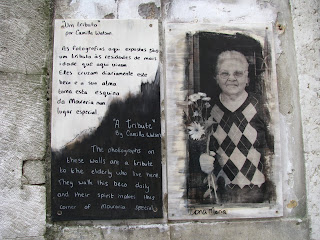 "Um tributo"
por Camilla Watson
As fotografias aqui expostas são
um tributo às residentes de mais
idade que aqui vivem.
Eles cruzam diariamente este
beco e a sua alma
torna esta esquina
da Mouraria num
lugar especial.
"A tribute"
By Camilla Watson
The photographs on
these walls are a tribute
to the elderly who live here.
They walk this beco daily
and their spirit makes this
corner of Mouraria special.
Dona Maria